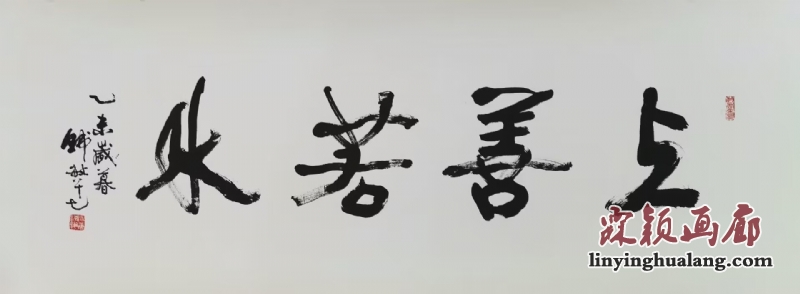 上善若水
乙未歲暮
錢敏
霖颖画廊
linyinghualang.com